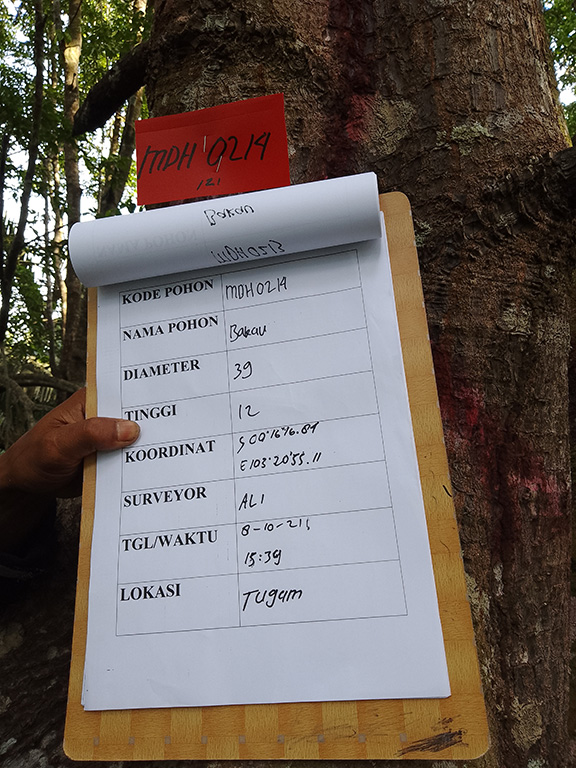 MDH 0214
121
Bakau
MDH0213
KODE POHON MDH0214
NAMA POHON Bakau
DIAMETER 39
TINGGI 12
KOORDINAT
E103°20'55.11
SURVEYOR ALI
TGL/WAKTU 8-10-21
15:39
LOKASI Tugam